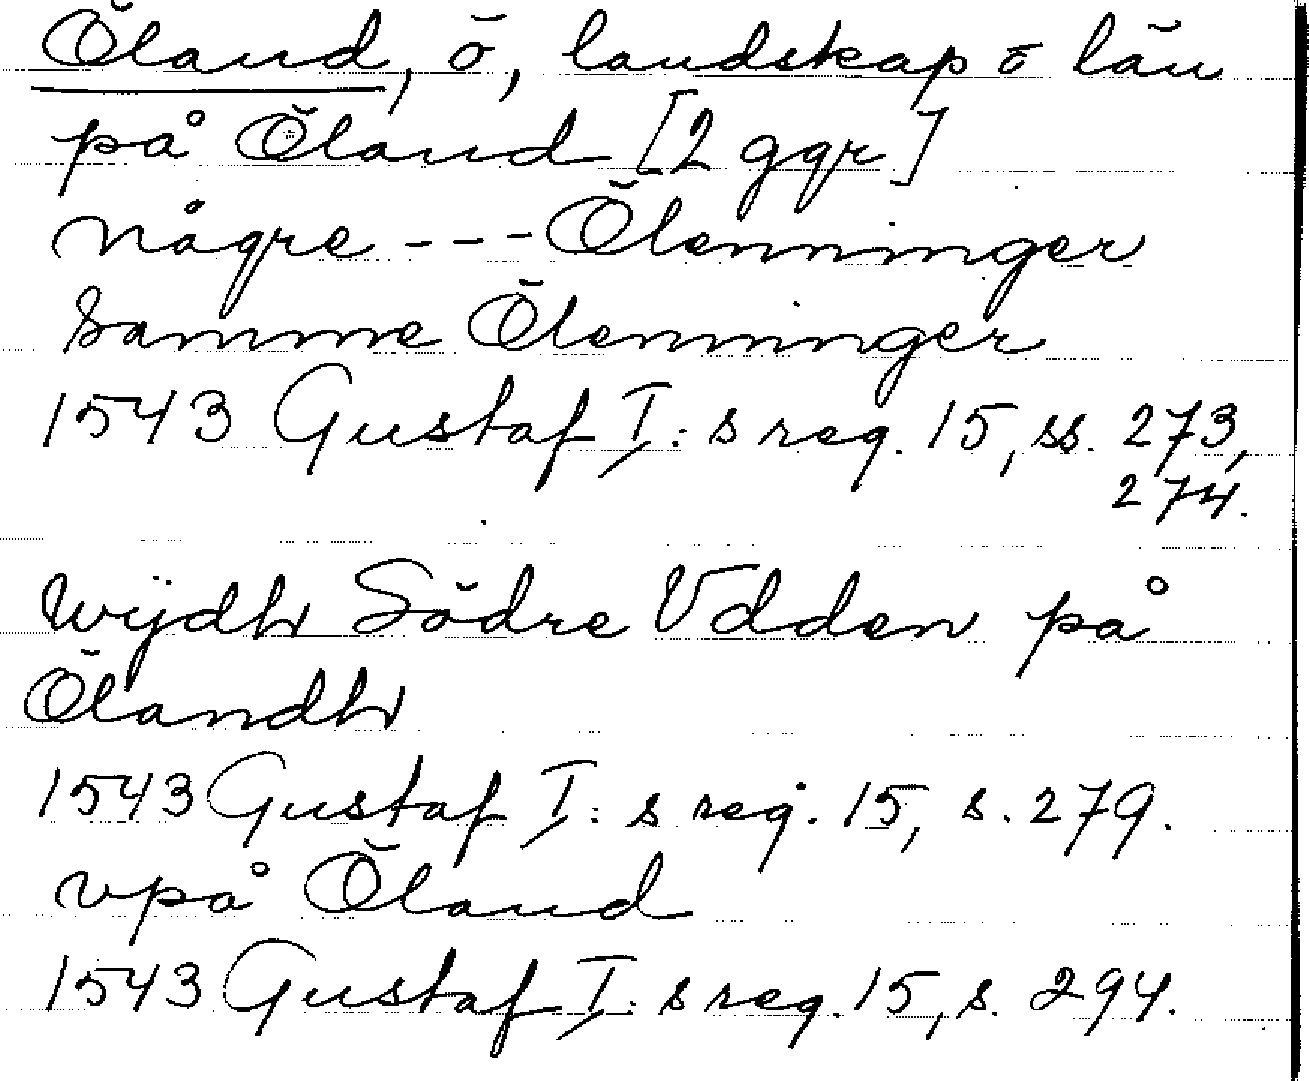 Öland, ö, landskap o län
på Öland [2 ggr]
Någre --- Ölenninger
Samme Ölenninger
1543 Gustaf I:s reg. 15, ss. 273,
274.
Wijdh Södre Vdden på
Ölandh
1543 Gustaf I:s reg. 15, s. 279.
vpå Öland
1543 Gustaf I:s reg. 15, s. 294.